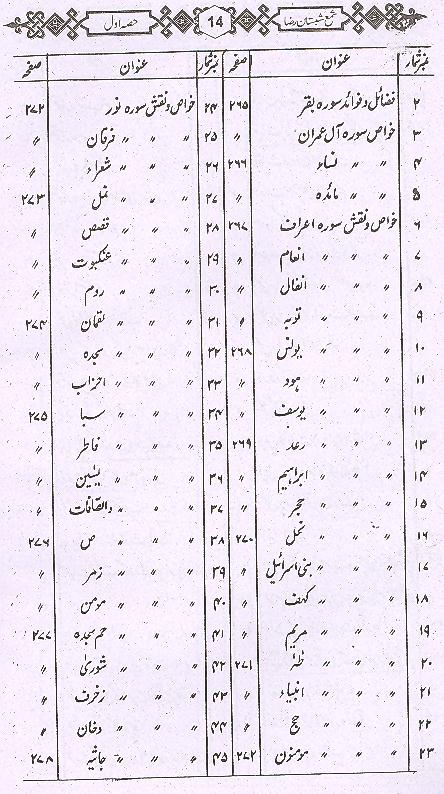 شمع شبستان رضا 14 حصہ اول
نمبر شمار عنوان صفحہ نمبر شمار عنوان صفحہ
۲ فضائل وفوائد سورہ بقر ۲۶۵ ۲۴ خواص ونقش سورہ نور ۲۷۲
۳ خواص سورہ آل عمران ″ ۲۵ ″ ″ ″ فرقان ″
۴ ″ ″ نساء ۲۶۶ ۲۶ ″ ″ ″ شعراء ″
۵ ″ ″ مائدہ ″ ۲۷ ″ ″ ″ نمل ۲۷۳
۶ خواص ونقش سورہ اعراف ۲۶۷ ۲۸ ″ ″ ″ قصص ″
۷ ″ ″ ″ انعام ″ ۲۹ ″ ″ ″ عنکبوت ″
۸ ″ ″ ″ انفال ″ ۳۰ ″ ″ ″ روم ″
۹ ″ ″ ″ توبہ ″ ۳۱ ″ ″ ″ لقمان ۲۷۴
۱۰ ″ ″ ″ یونس ۲۶۸ ۳۲ ″ ″ ″ سجدہ ″
۱۱ ″ ″ ″ ہود ″ ۳۳ ″ ″ ″ احزاب ″
۱۲ ″ ″ ″ یوسف ″ ۳۴ ″ ″ ″ سبا ۲۷۵
۱۳ ″ ″ ″ رعد ۲۶۹ ۳۵ ″ ″ ″ فاطر ″
۱۴ ″ ″ ″ ابراہیم ″ ۳۶ ″ ″ ″ یٰسین ″
۱۵ ″ ″ ″ حجر ″ ۳۷ ″ ″ ″ والصّافات ″
۱۶ ″ ″ ″ نحل ۲۷۰ ۳۸ ″ ″ ″ ص ۲۷۶
۱۷ ″ ″ ″ بنی اسرائیل ″ ۳۹ ″ ″ ″ زمر ″
۱۸ ″ ″ ″ کہف ″ ۴۰ ″ ″ ″ مومن ″
۱۹ ″ ″ ″ مریم ″ ۴۱ ″ ″ ″ حم سجدہ ۲۷۷
۲۰ ″ ″ ″ طٰہٰ ۲۷۱ ۴۲ ″ ″ ″ شوریٰ ″
۲۱ ″ ″ ″ انبیاء ″ ۴۳ ″ ″ ″ زخرف ″
۲۲ ″ ″ ″ حج ″ ۴۴ ″ ″ ″ دخان ″
۲۳ ″ ″ ″ مومنون ۲۷۲ ۴۵ ″ ″ ″ جاثیہ ۲۷۸